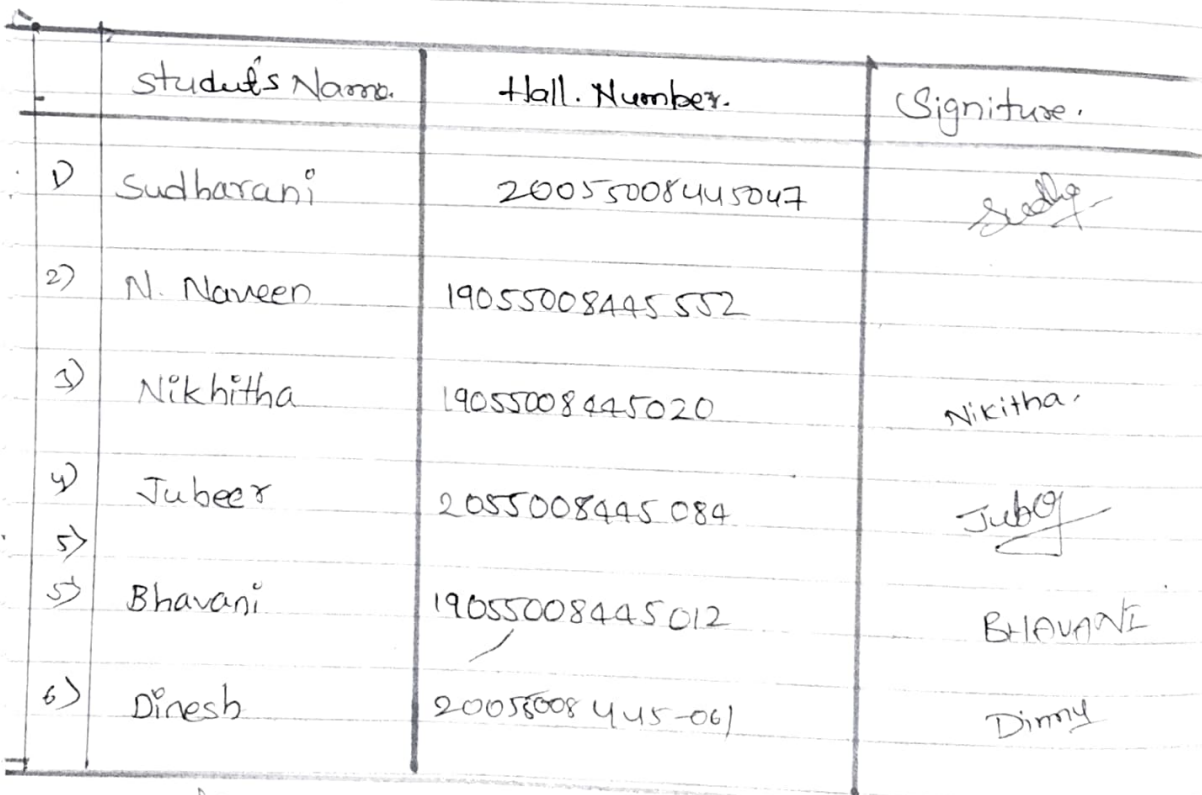 Studut's Name. Hall. Number. Signiture.
1) Sudharani 20055008445047 Sudha
2) N. Naveen 19055008445552
3) Nikhitha 19055008445020 Nikitha.
4) Jubeer 2055008445084
5)
5) Bhavani 19055008445012 BHAVANI
6) Dinesh 20055008445-061 Dinny